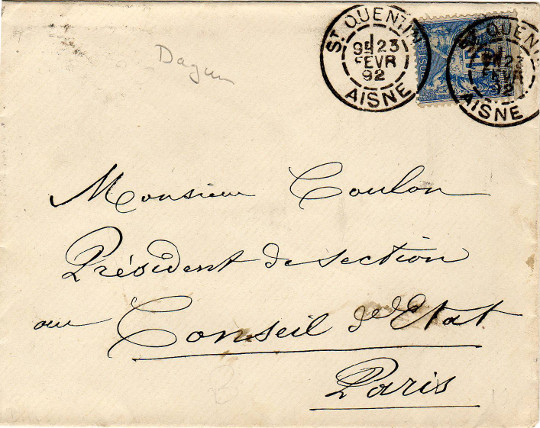 ST QUENTIN
9E 23
FEVR
92
AISNE
ST QUENTI
23
FEVR
92
AISNE
Daguin
Monsieur Coulon
Président de section
au Conseil d'Etat
Paris